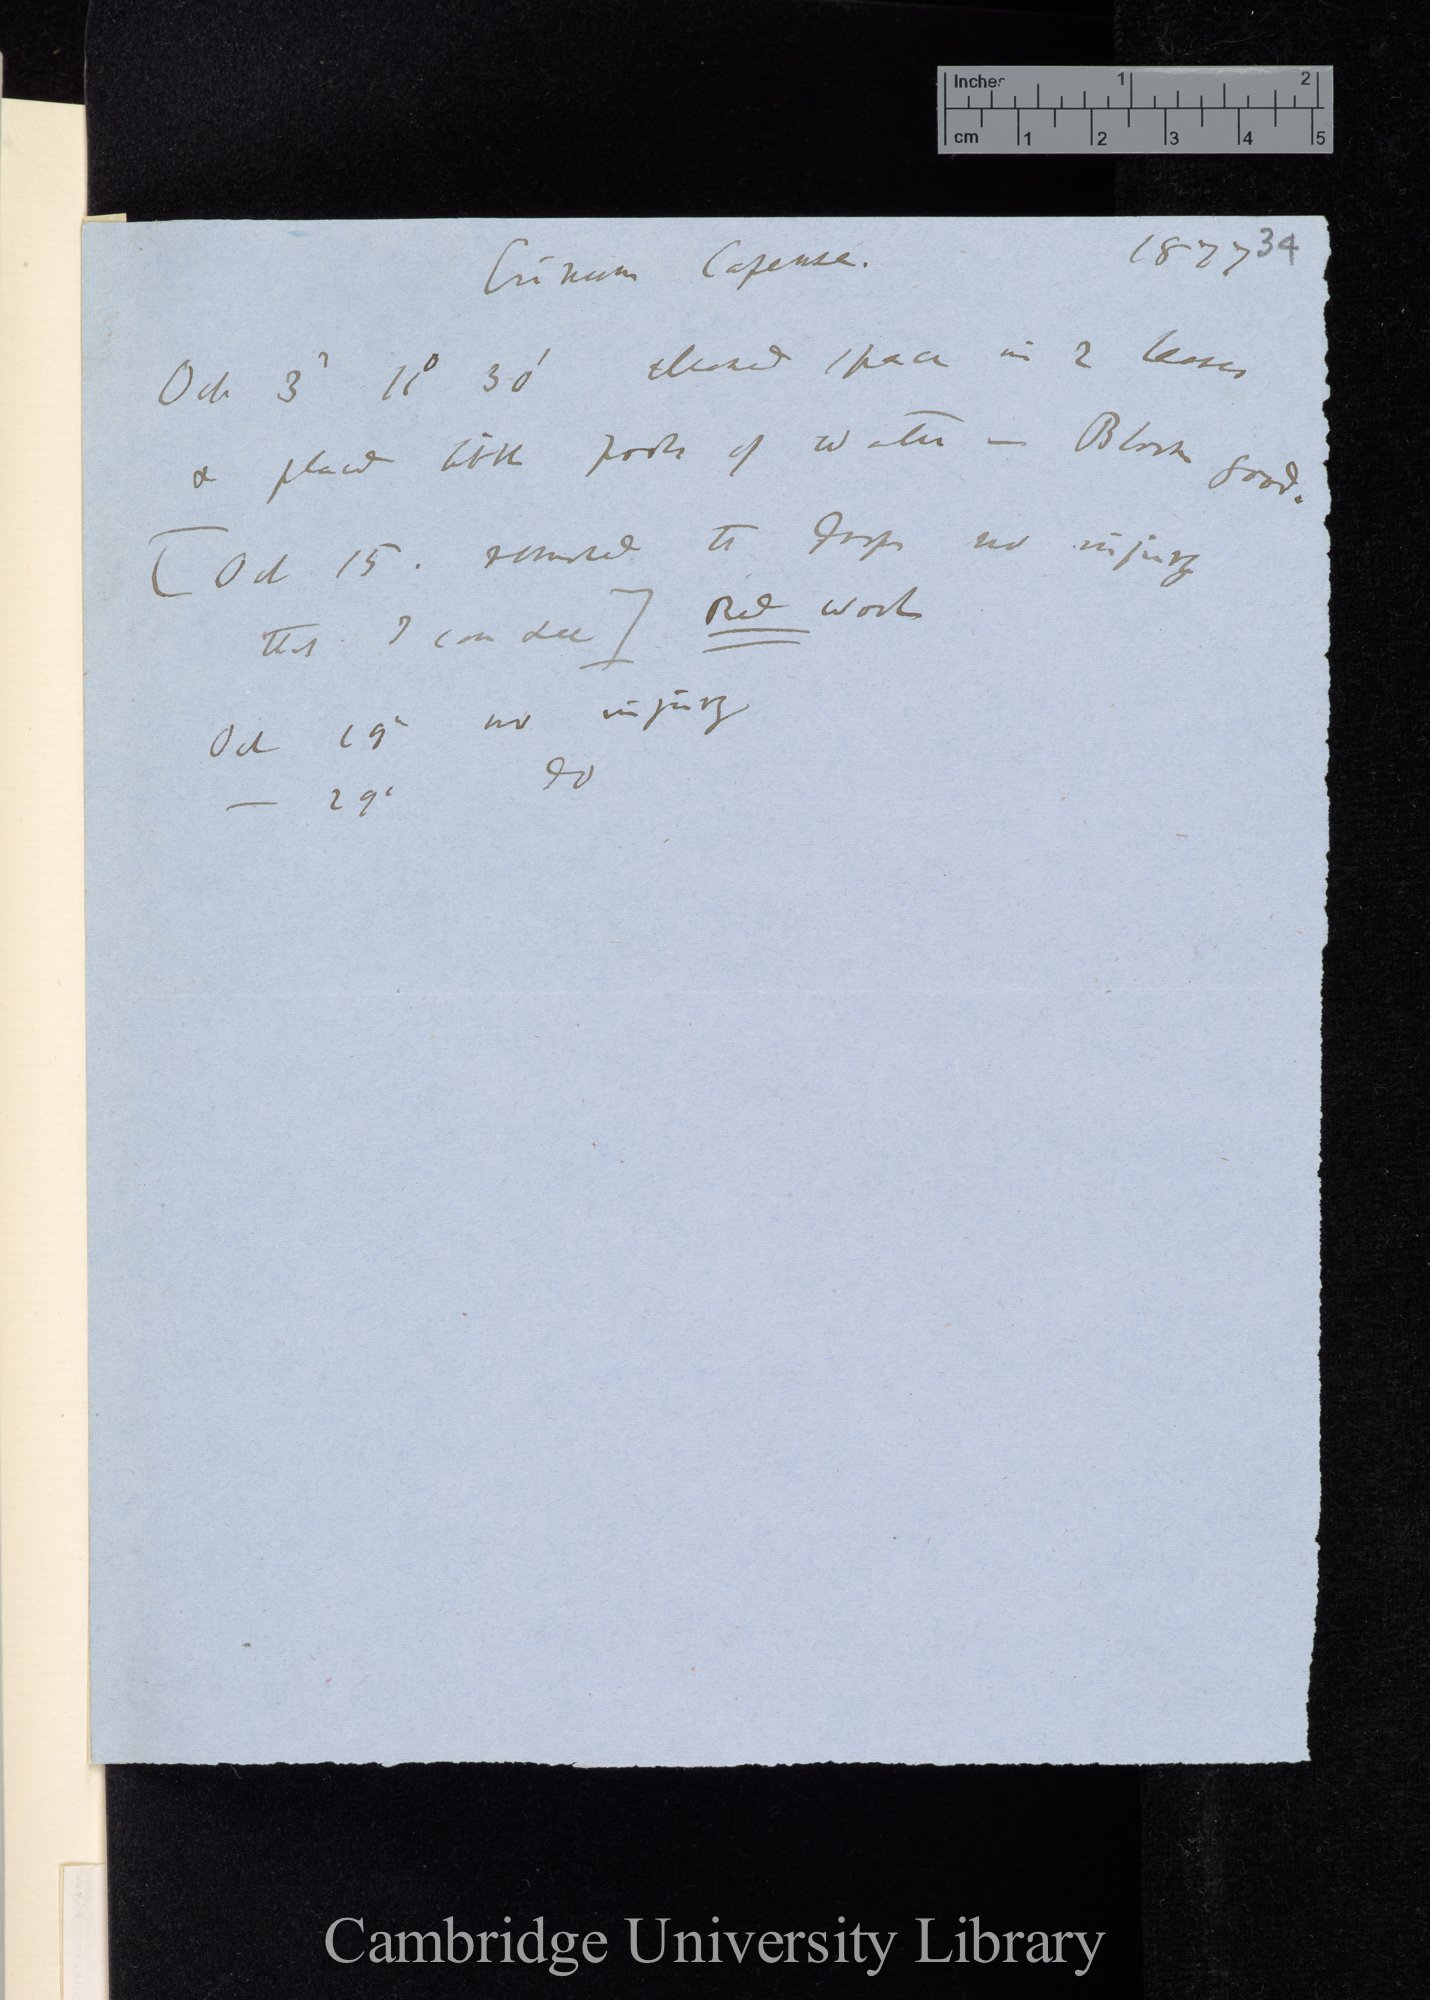 Inches 1 2
cm 1 2 3 4 5
Crinum Capense. 1877 34
Oct 3d 11° 30' cleaned space in 2 leaves
& placed little pools of water — Bloom good.
[Oct 15. no injury
that I can see] Red wool
Oct 19th no injury
— 29th do
Cambridge University Library